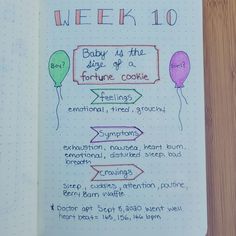 WEEK 10
Baby is the
size of a
fortune cookie
Boy?
Girl?
feelings
emotional, tired, grouchy
Symptoms
exhaustion, nausea, heart burn,
emotional, disturbed sleep, bad
breath
cravings
sleep, cuddles, attention, poutine,
Berry Barn waffle
* Doctor apt Sept 8, 2020 went well
heart beat= 165, 156, 166 bpm